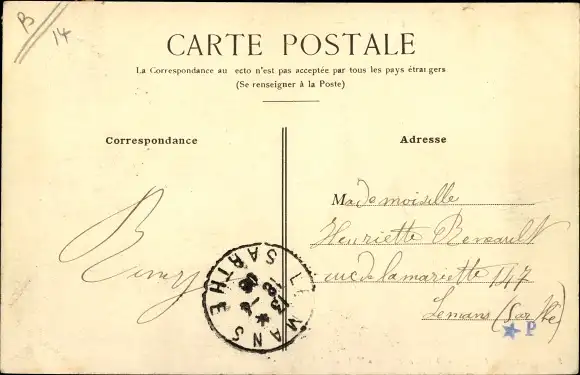 B
14
CARTE POSTALE
La Correspondance au ecto n'est pas acceptée par tous les pays étrangers
(Se renseigner à la Poste)
Correspondance
Adresse
Mademoiselle
Henriette Renault
rue de la mariette 147
Lemans (Sarthe)
LE MANS
SARTHE
P